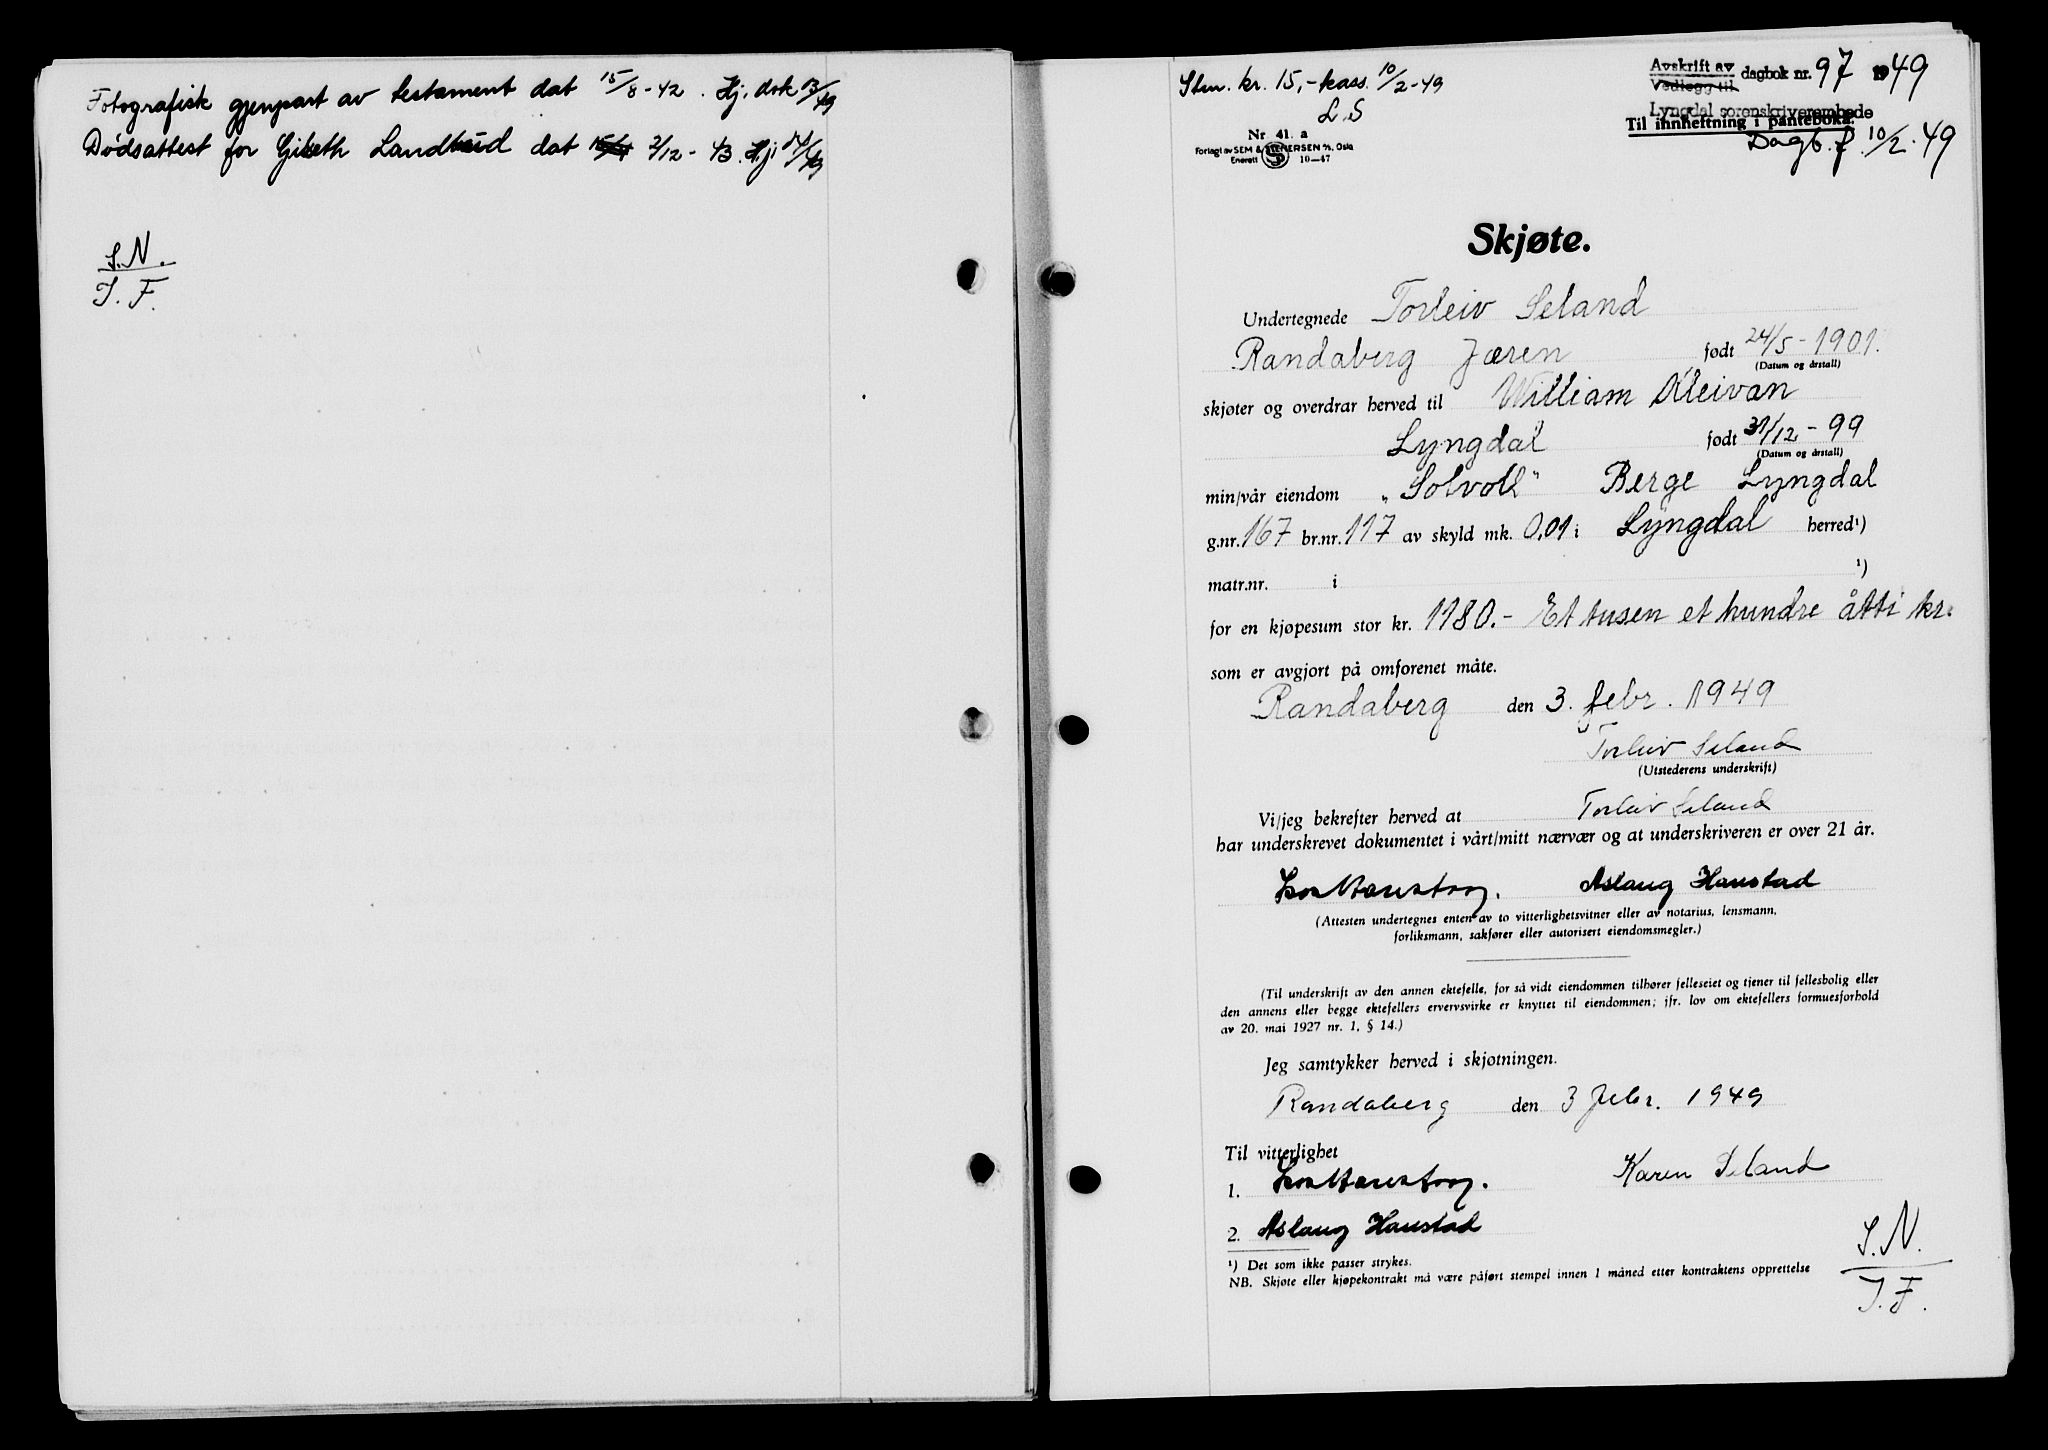 Fotografisk gjenpart av testament dat 15/8-42. Hj. dok 13/49
Dødsattest for Landbud dat 2/12-43. Hj. 14/49
S.N.
T.F.
Stm. kr. 15,- kass. 10/2-49
L.S
Nr. 41. a
Forlagt av SEM & STENERSEN A/S, Oslo
Enerett 10—47
Avskrift av
Vedlegg til
dagbok nr. 97 1949
Lyngdal sorenskriverembede
Til innheftning i panteboka.
Dagb. f. 10/2.49
Skjøte.
Undertegnede Torleiv Seland
Randaberg Jæren født 24/5-1901.
(Datum og årstall)
skjøter og overdrar herved til William Kleivan
Lyngdal født 31/12-99
(Datum og årstall)
min/vår eiendom „Solvoll" Berge Lyngdal
g.nr. 167 br.nr. 117 av skyld mk. 0,01 i Lyngdal herred¹)
matr.nr. i ¹)
for en kjøpesum stor kr. 1180.- Et tusen et hundre åtti kr.
som er avgjort på omforenet måte.
Randaberg den 3. febr. 1949
Torleiv Seland
(Utstederens underskrift)
Vi/jeg bekrefter herved at Torleiv Seland
har underskrevet dokumentet i vårt/mitt nærvær og at underskriveren er over 21 år.
Aslaug Hanstad
(Attesten undertegnes enten av to vitterlighetsvitner eller av notarius, lensmann,
forliksmann, sakfører eller autorisert eiendomsmegler.)
(Til underskrift av den annen ektefelle, for så vidt eiendommen tilhører felleseiet og tjener til fellesbolig eller
den annens eller begge ektefellers ervervsvirke er knyttet til eiendommen; jfr. lov om ektefellers formuesforhold
av 20. mai 1927 nr. 1, § 14.)
Jeg samtykker herved i skjøtningen.
Randaberg den 3 febr. 1949
Til vitterlighet
1. Karen Seland
2. Aslaug Hanstad
¹) Det som ikke passer strykes.
NB. Skjøte eller kjøpekontrakt må være påført stempel innen 1 måned etter kontraktens opprettelse
S.N.
T.F.